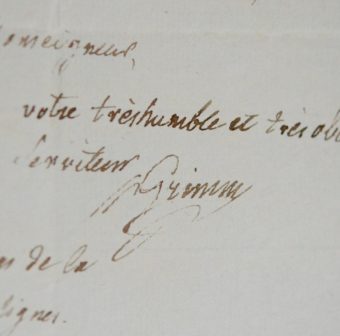 onseigneur,
votre très humble et très obé
Serviteur
Grimm
de la
lignes.